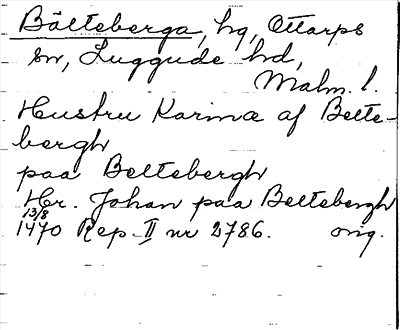 Bälteberga, hg, Ottarps
sn, Luggude hd,
Malm. l.
Hustru Karinæ af Belte-
bergh
paa Beltebergh
Hr. Johan paa Beltebergh
13/8
1470 Rep. II nr 2786. orig.